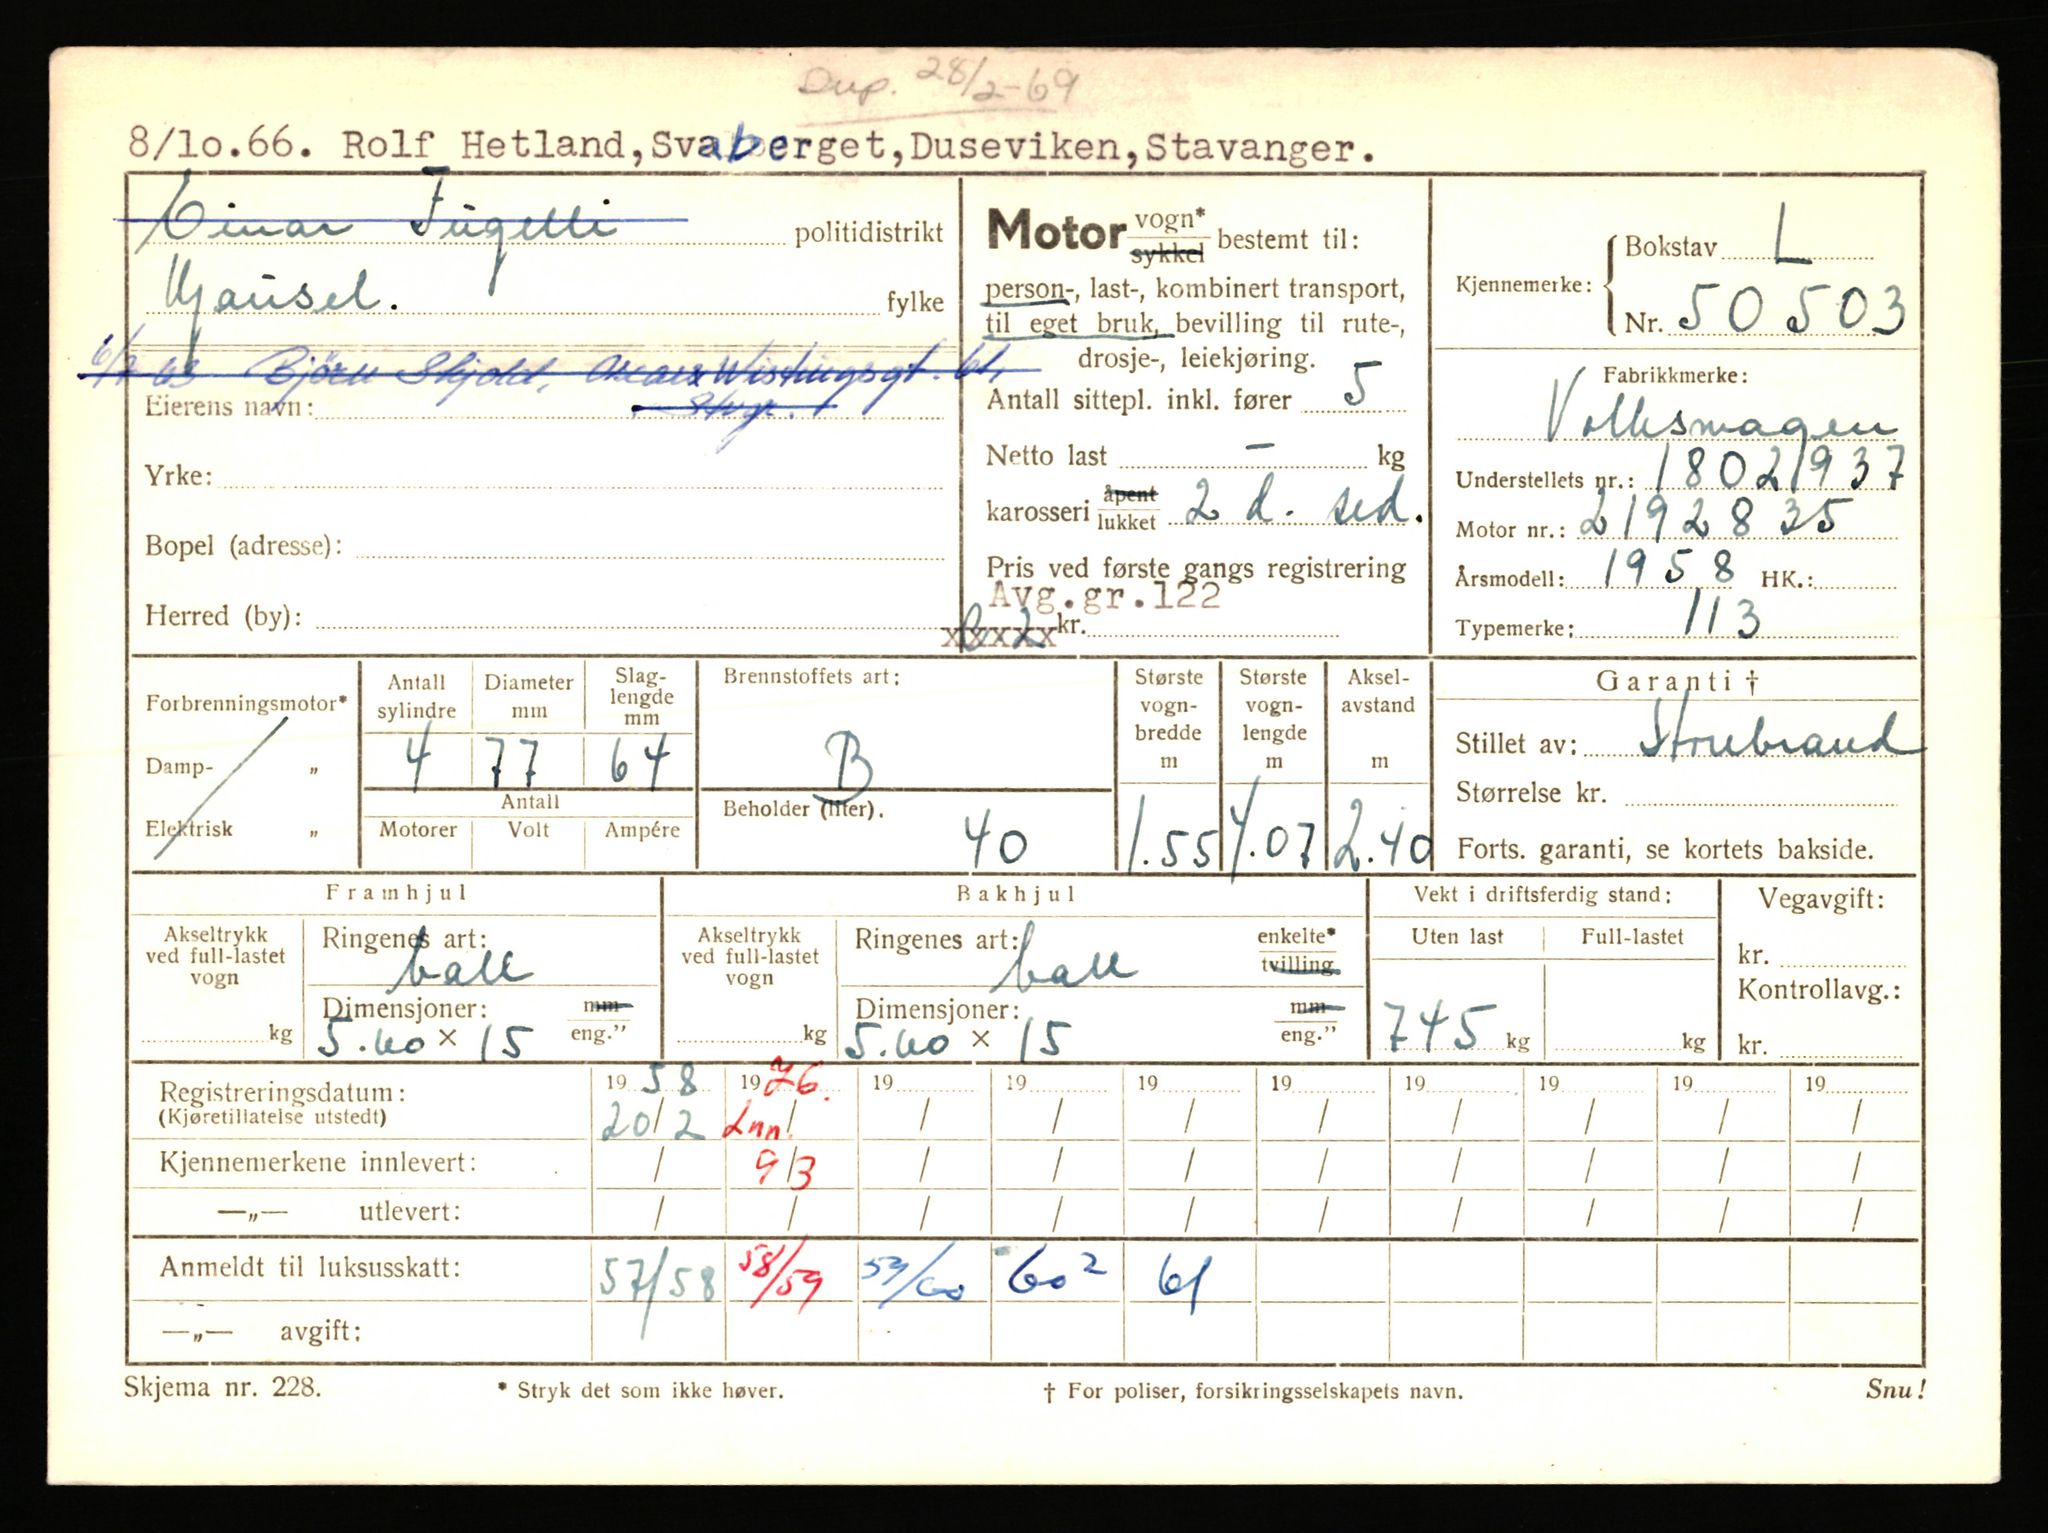 Dup. 28/2-69
8/10.66. Rolf Hetland, Svaberget, Duseviken, Stavanger.
Einar Fugelli politidistrikt
Hjausel. fylke
63 Björn Skjold, Oscar Wistingsgt. 61,
Stvgr.
Eierens navn:
Yrke:
Bopel (adresse):
Herred (by):
Motor vogn* sykkel bestemt til:
person-, last-, kombinert transport,
til eget bruk, bevilling til rute-,
drosje-, leiekjøring.
Antall sittepl. inkl. fører 5
Netto last — kg
karosseri åpent lukket 2 d. sed.
Pris ved første gangs registrering
Avg.gr.122
kr.
Kjennemerke: Bokstav L
Nr. 50503
Fabrikkmerke:
Volkswagen
Understellets nr.: 18021937
Motor nr.: 2192835
Årsmodell: 1958 HK.:
Typemerke: 113
Forbrenningsmotor*
Damp- „
Elektrisk „
Antall sylindre Diameter mm Slag-lengde mm
4 77 64
Antall
Motorer Volt Ampére
Brennstoffets art:
B
Beholder (liter).
40
Største vogn-bredde m
1.55
Største vogn-lengde m
4.07
Aksel-avstand m
2.40
Garanti †
Stillet av: Storebrand
Størrelse kr.
Forts. garanti, se kortets bakside.
Framhjul
Akseltrykk ved full-lastet vogn
kg
Ringenes art:
ball
Dimensjoner: mm
5.60 × 15 eng.”
Bakhjul
Akseltrykk ved full-lastet vogn
kg
Ringenes art: enkelte* tvilling
ball
Dimensjoner: mm
5.60 × 15 eng.”
Vekt i driftsferdig stand:
Uten last Full-lastet
745 kg kg
Vegavgift:
kr.
Kontrollavg.:
kr.
Registreringsdatum: 19 58 19 76. 19 19 19 19 19 19 19 19
(Kjøretillatelse utstedt) 20/2 Inn. / / / / / / / / /
Kjennemerkene innlevert: / 9/3 / / / / / / / /
—„— utlevert: / / / / / / / / / /
Anmeldt til luksusskatt: 57/58 58/59 59/60 60² 61
—„— avgift:
Skjema nr. 228. * Stryk det som ikke høver. † For poliser, forsikringsselskapets navn. Snu!